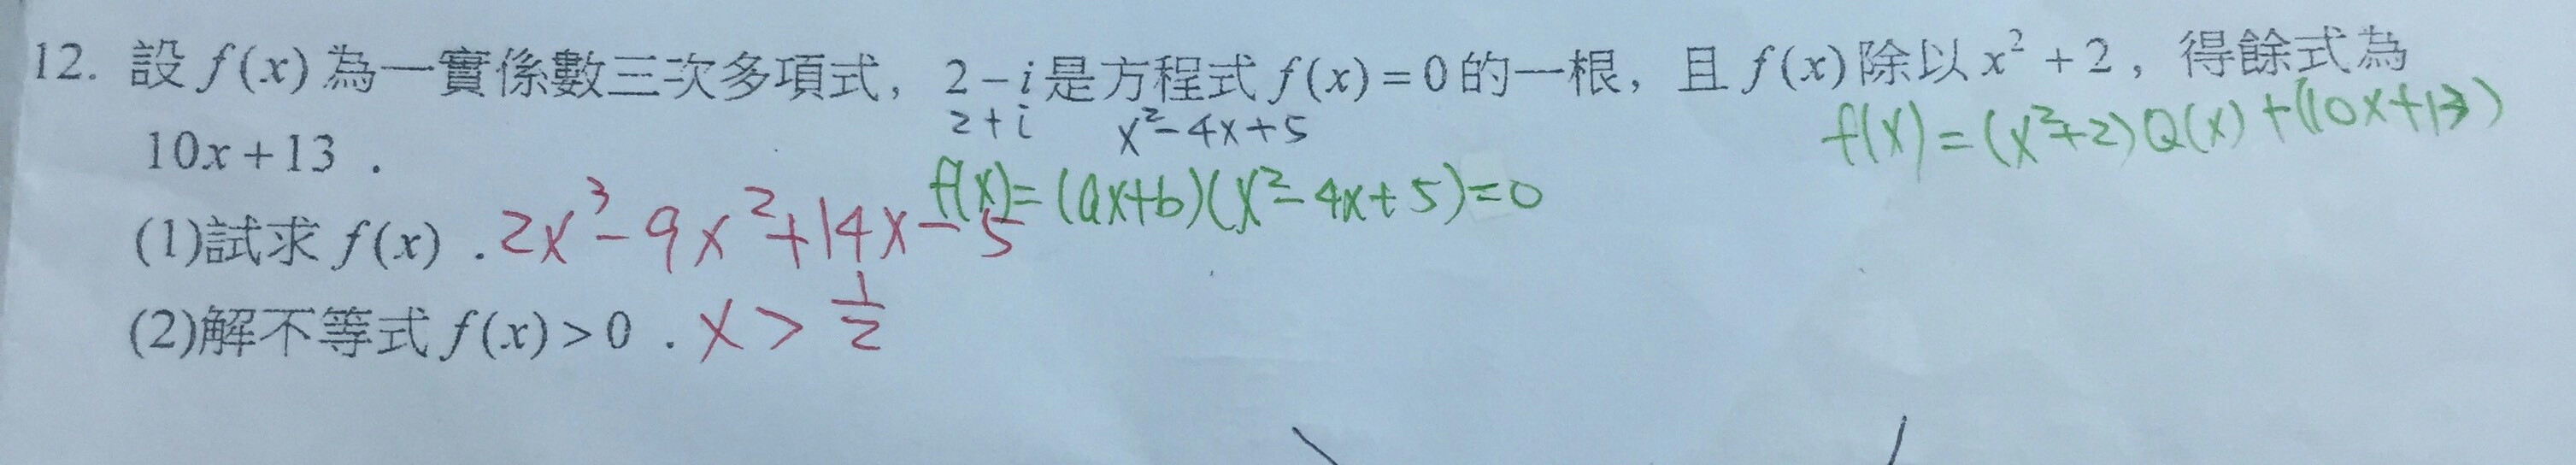 12. 設 f(x) 為一實係數三次多項式，2-i 是方程式 f(x)=0 的一根，且 f(x) 除以 x²+2，得餘式為
2+i x²-4x+5 f(x)=(x²+2)Q(x)+(10x+13)
10x+13．
f(x)=(ax+b)(x²-4x+5)=0
(1)試求 f(x)．2x³-9x²+14x-5
(2)解不等式 f(x)>0．x>1/2